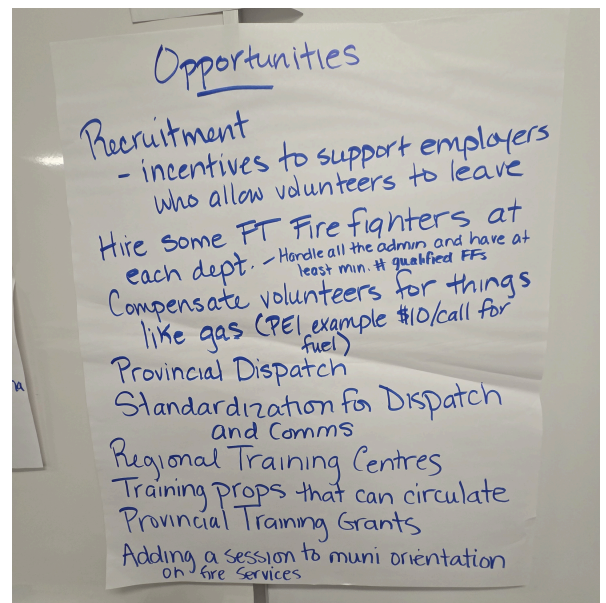 Opportunities
Recruitment
- incentives to support employers
who allow volunteers to leave
Hire some FT Firefighters at
each dept. - Handle all the admin and have at
least min. # qualified FFs
Compensate volunteers for things
like gas (PEI example $10/call for
fuel)
Provincial Dispatch
Standardization for Dispatch
and Comms
Regional Training Centres
Training props that can circulate
Provincial Training Grants
Adding a session to muni orientation
on fire services